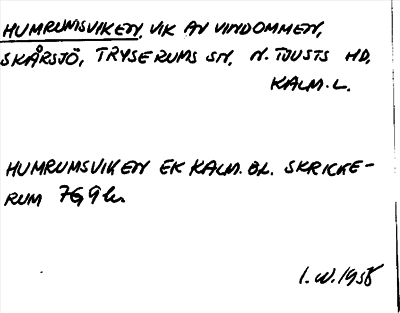 HUMRUMSVIKEN, VIK AV VINDOMMEN,
SKÅRSJÖ, TRYSERUMS SN, N. TJUSTS HD,
KALM. L.
HUMRUMSVIKEN EK KALM. BL. SKRICKE-
RUM 7G9h
I.W. 1958